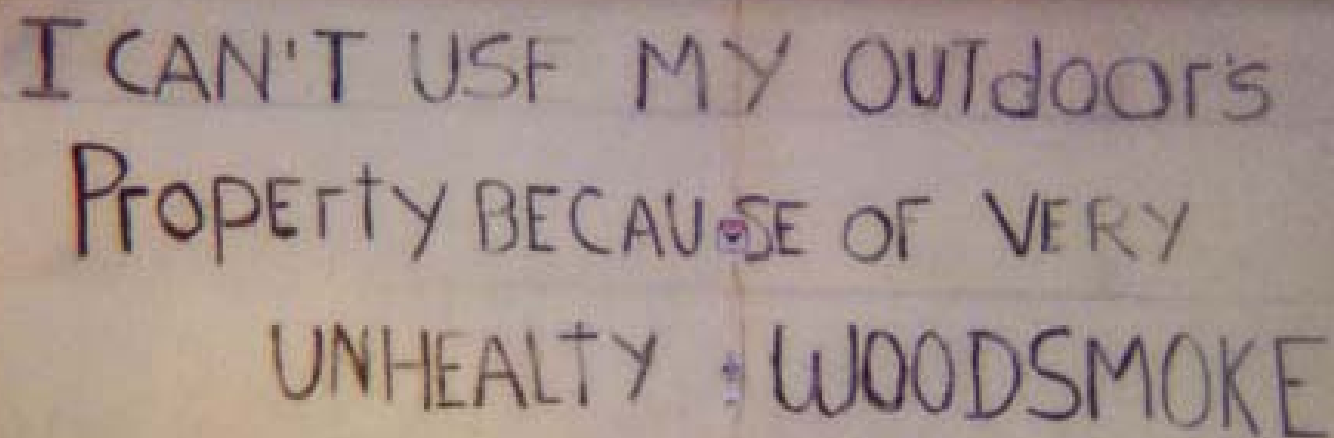 I CAN'T USE MY OUTdOOr's
PrOPErtY BECAUSE OF VERY
UNHEALTY WOODSMOKE